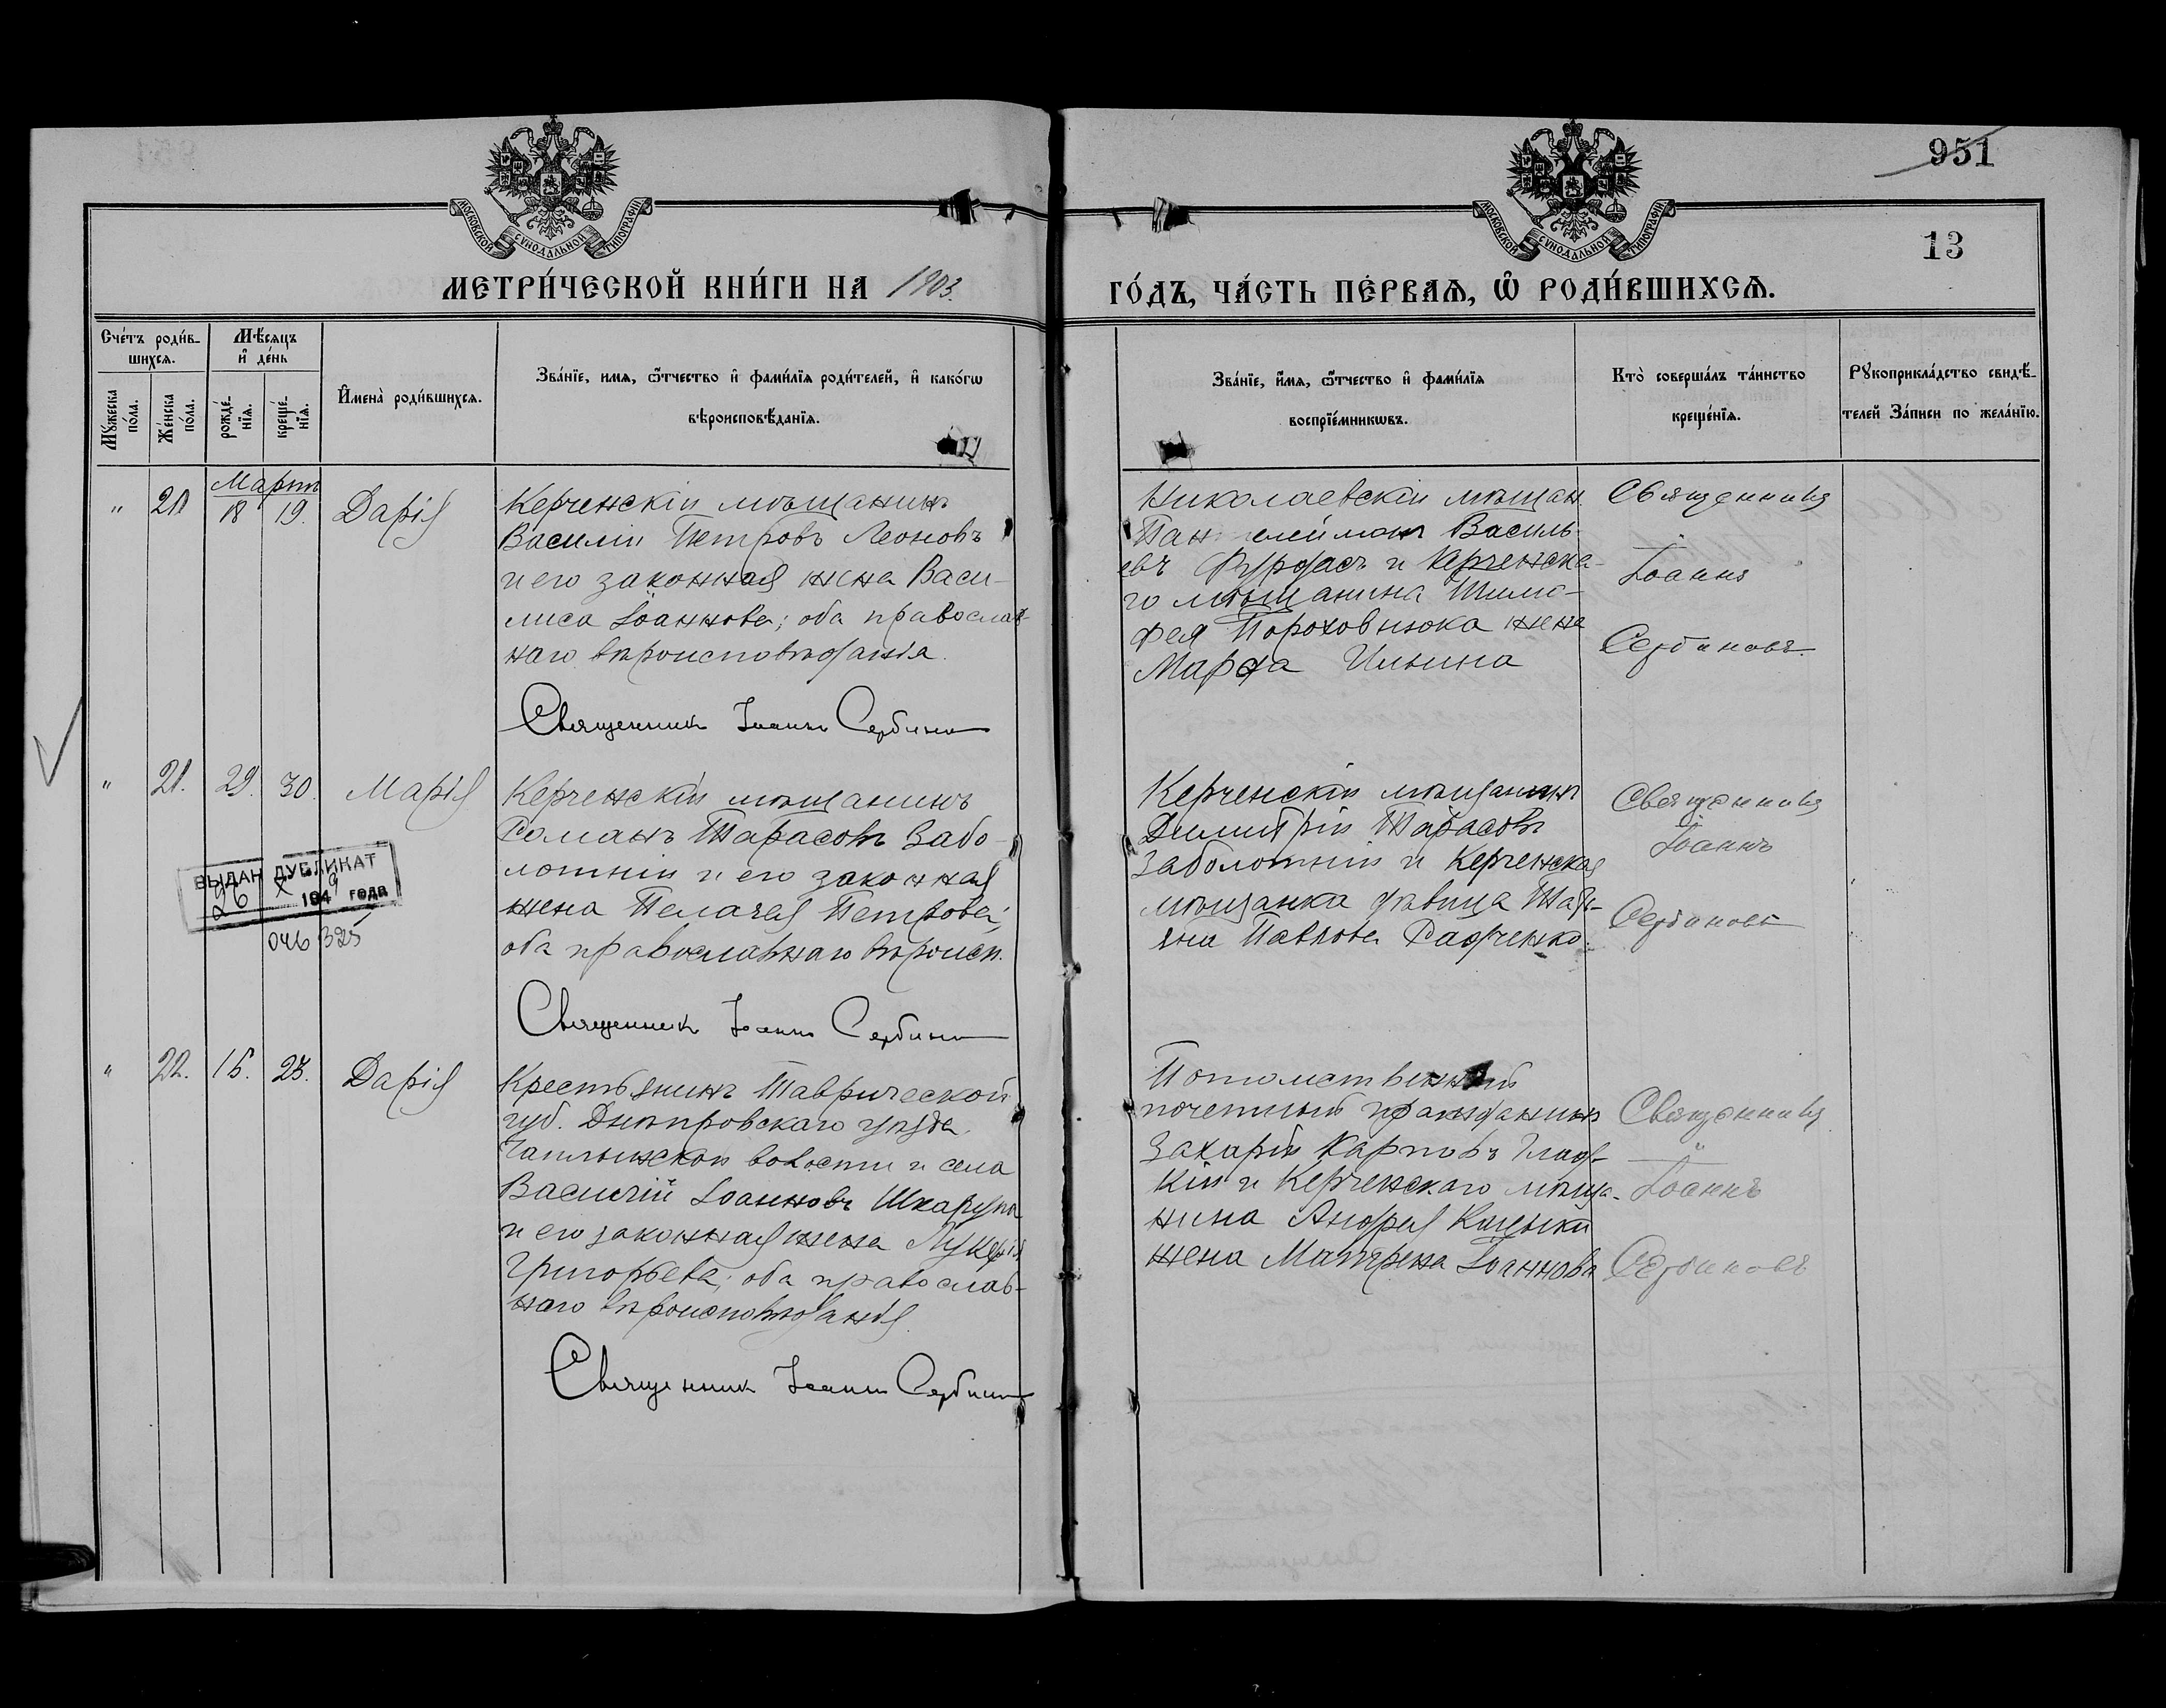 951
13
МОСКОВСКОЙ СѴНОДАЛЬНОЙ ТИПОГРАФІИ
МОСКОВСКОЙ СѴНОДАЛЬНОЙ ТИПОГРАФІИ
МЕТРИ́ЧЕСКОЙ КНИ́ГИ НА 1903.
ГО́ДЪ, ЧА́СТЬ ПЕ́РВАѦ, Ѽ РОДИ́ВШИХСѦ.
Сче́тъ роди́в-
шихсѧ.
Мꙋжеска по́ла.
Же́нска по́ла.
Мѣ́сѧцъ
и҆ де́нь
рожде́-
нїѧ.
креще́-
нїѧ.
И҆мена̀ роди́вшихсѧ.
Зва́нїе, имѧ, ѻ҆́тчество и҆ фами́лїѧ роди́телей, и҆ како́гѡ
вѣроисповѣ́данїѧ.
Зва́нїе, и҆́мѧ, ѻ҆́тчество и҆ фами́лїѧ
воспрїе́мникѡвъ.
Кто̀ соверша́лъ та́инство
креще́нїѧ.
Рꙋкоприкла́дство свидѣ́-
телей За́писи по жела́нїю.
Мартъ
" 20 18 19. Дарія
Керченскій мѣщанинъ
Василій Петровъ Леоновъ
и его законная жена Васи-
лиса Іоаннова; оба православ-
наго вѣроисповѣданія.
Священникъ Іоаннъ Сербиновъ
Николаевскій мѣщан.
Пантелеймонъ Василь-
евъ и Керченска-
го мѣщанина Тимо-
фея Пороховнюка жена
Марфа Ильина
Священникъ
Іоаннъ
Сербиновъ
" 21. 29. 30. Марія
Керченскій мѣщанинъ
Романъ Тарасовъ Забо-
лотній и его законная
жена Пелагея Петрова;
оба православнаго вѣроисп.
Священникъ Іоаннъ Сербиновъ
Керченскій мѣщанинъ
Димитрій Тарасовъ
Заболотній и Керченская
мѣщанка дѣвица Тать-
яна Павлова Радченко.
Священникъ
Іоаннъ
Сербиновъ
ВЫДАН ДУБЛИКАТ
26 X 1949 года
046325
" 22. 15. 23. Дарія
Крестьянинъ Таврической
губ. Днѣпровскаго уѣзда
Чаплынской волости и села
Василій Іоанновъ Шкарупа
и его законная жена Лукерія
Григорьева; оба православ-
наго вѣроисповѣданія
Священникъ Іоаннъ Сербиновъ
Потомственный
почетный гражданинъ
Захарій Карповъ Глад-
кій и Керченскаго мѣща-
нина Андрея
жена Матрена Іоаннова
Священникъ
Іоаннъ
Сербиновъ